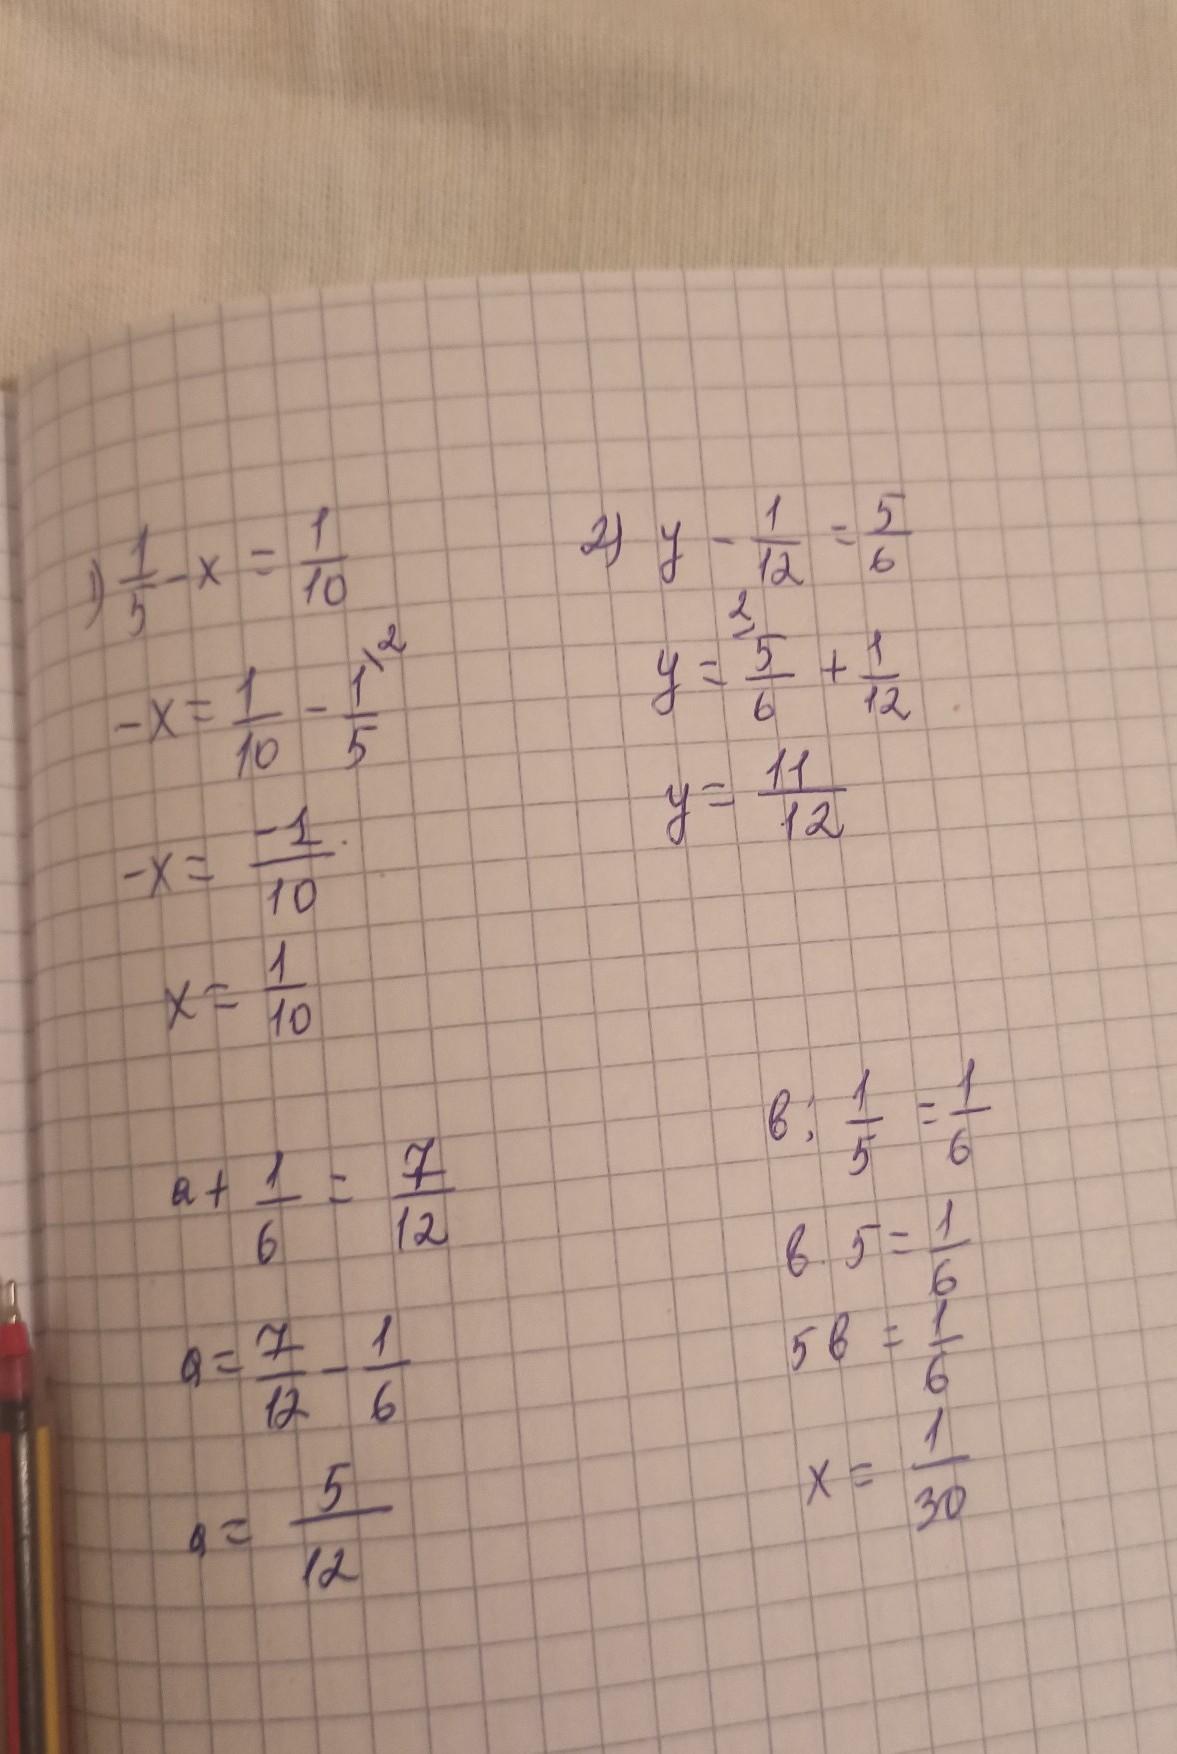 1) 1/5 - x = 1/10
-x = 1/10 - 1/5 \2
-x = -1/10
x = 1/10
2) y - 1/12 = 5/6
2
y = 5/6 + 1/12
y = 11/12
a + 1/6 = 7/12
a = 7/12 - 1/6
a = 5/12
в : 1/5 = 1/6
в · 5 = 1/6
5в = 1/6
x = 1/30